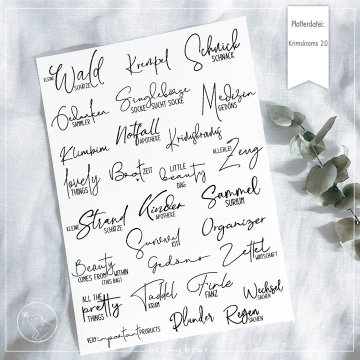 Plotterdatei:
Krimskrams 2.0
KLEINE Wald SCHÄTZE
Krempel
Schnick SCHNACK
Gedanken SAMMLER
Singlebörse SOCKE SUCHT SOCKE
Medizin GEDÖNS
Klimbim
Notfall APOTHEKE
Krimskrams
ALLERLEI Zeug
lovely THINGS
Boot ZEIT
LITTLE beauty BAG
KLEINE Strand SCHÄTZE
Kinder APOTHEKE
Sammel SURIUM
Survival KIT
Organizer
Beauty COMES FROM WITHIN (THIS BAG)
Gedöns
Zettel WIRTSCHAFT
ALL THE pretty THINGS
Täddel KRAM
Firle FANZ
Wechsel SACHEN
VERY important PRODUCTS
Plunder
Regen SACHEN